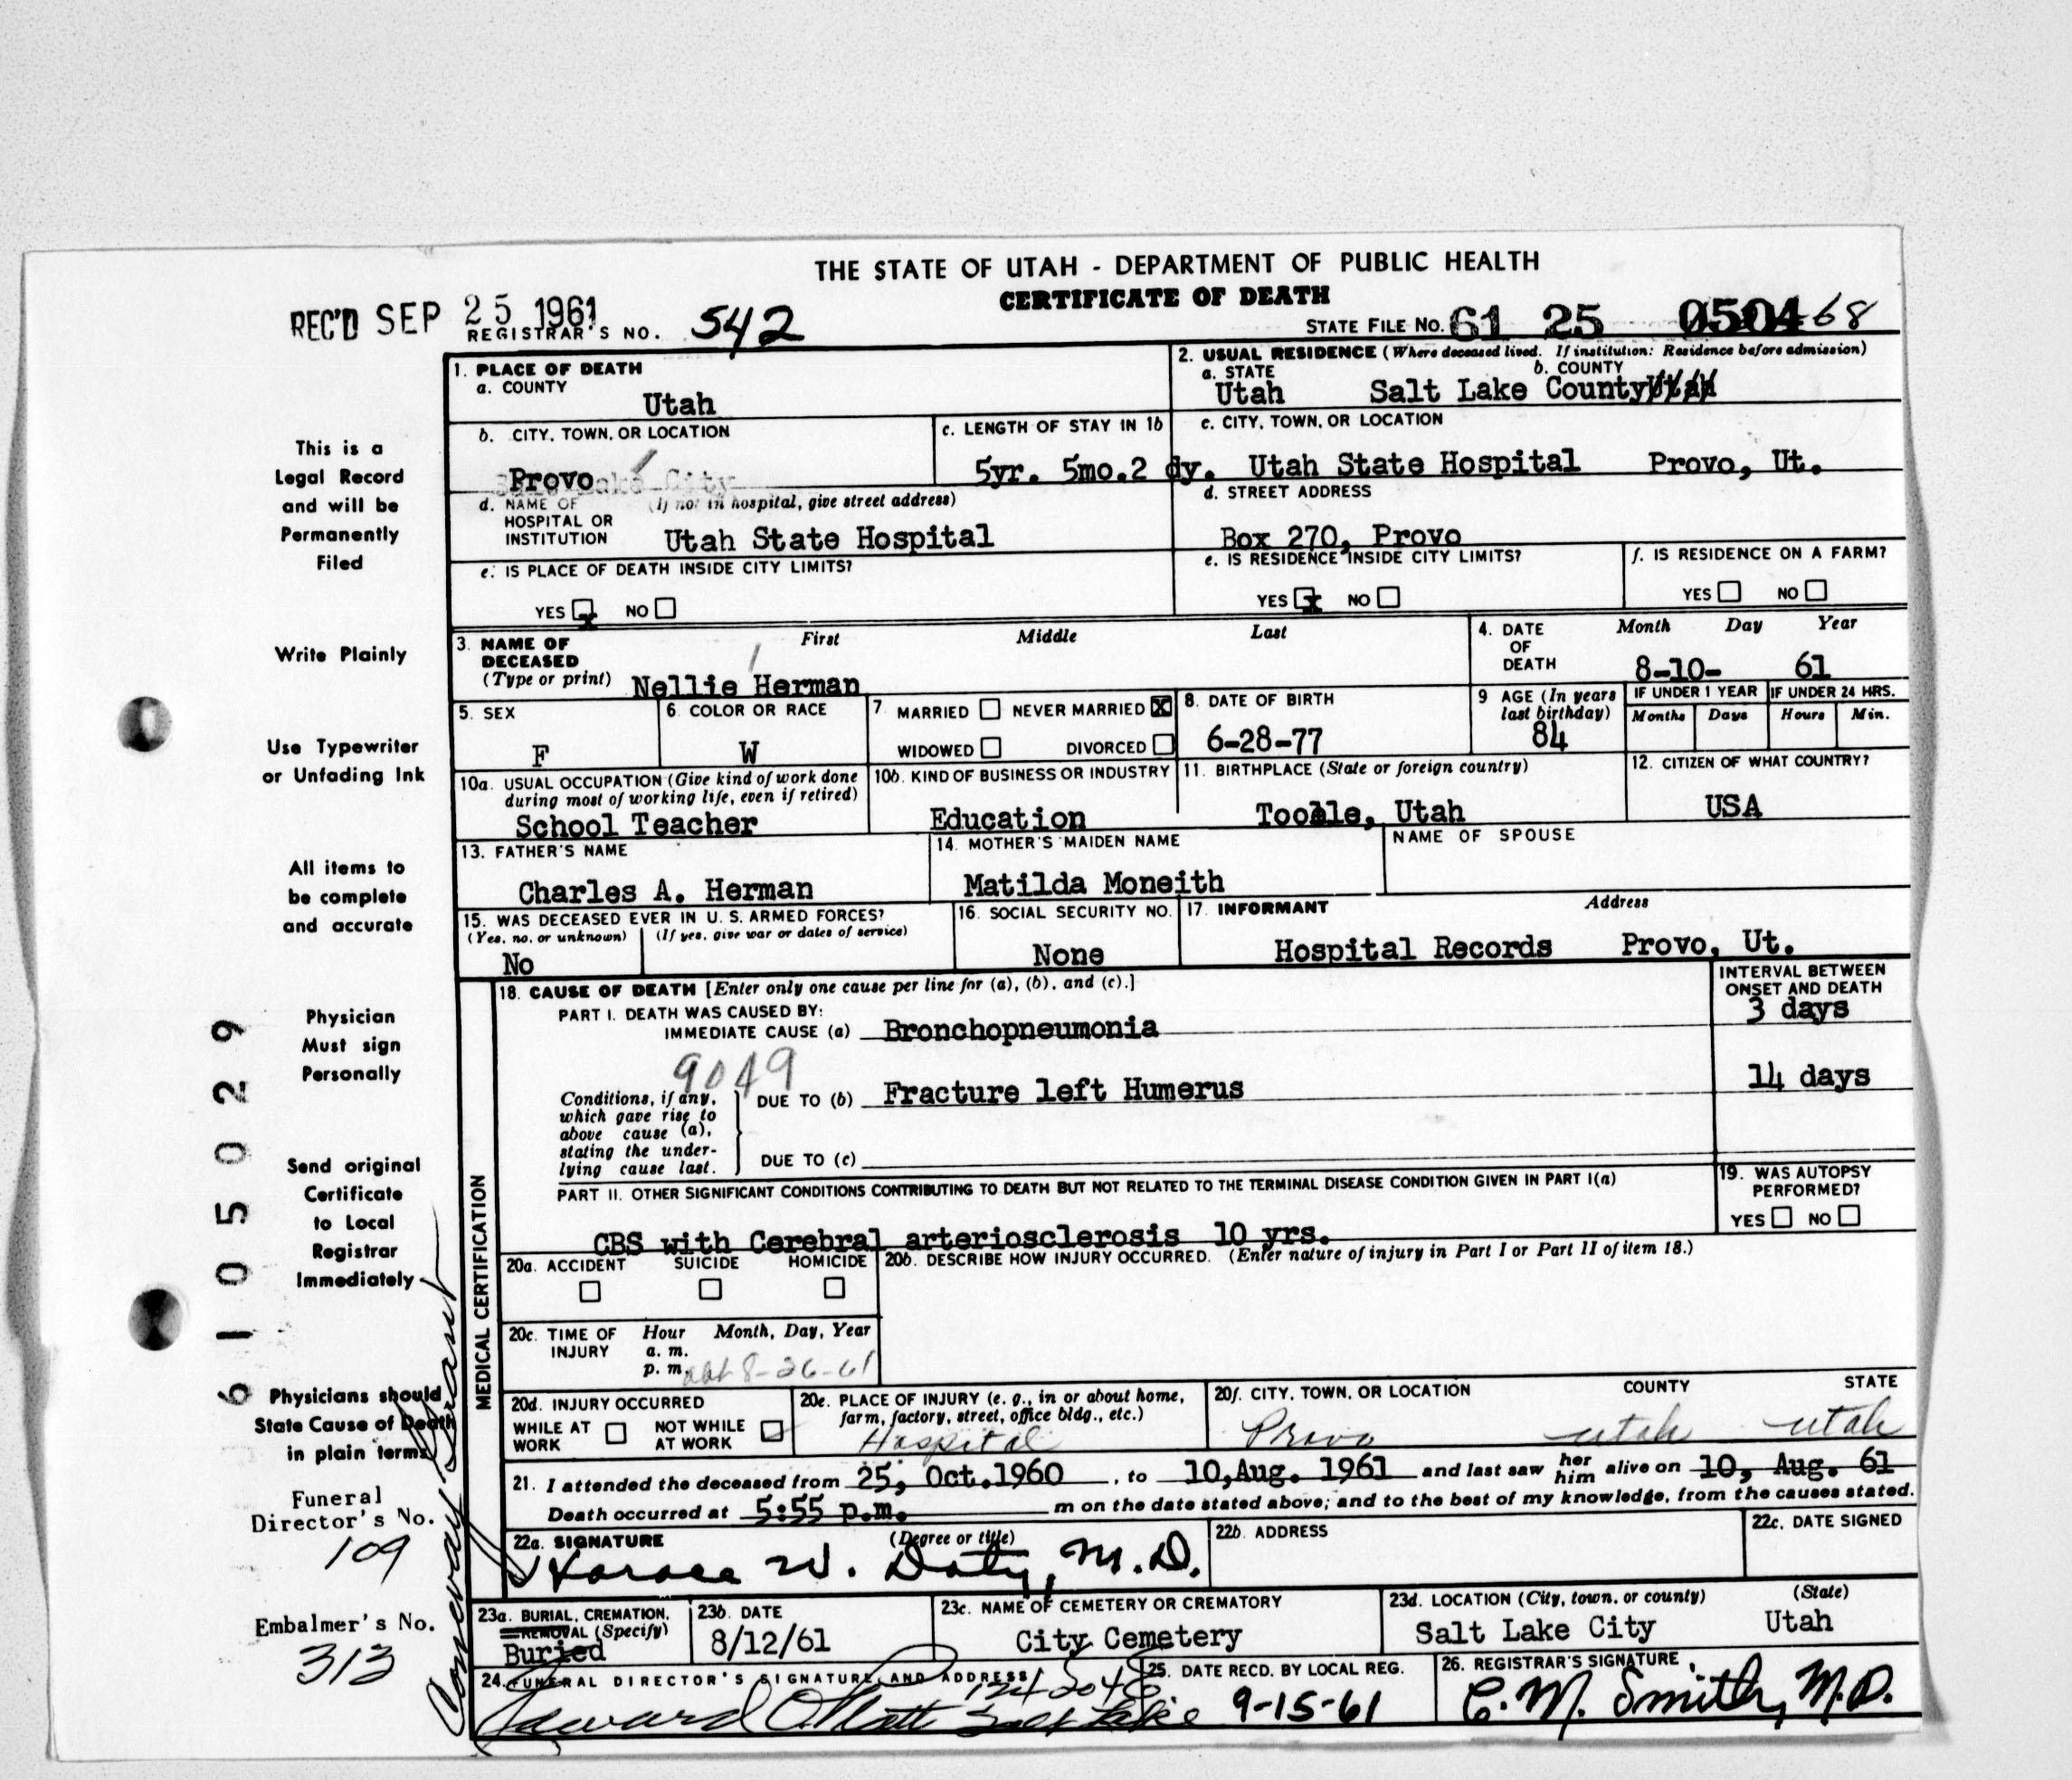 THE STATE OF UTAH - DEPARTMENT OF PUBLIC HEALTH
CERTIFICATE OF DEATH
REC'D SEP 25 1961
REGISTRAR'S NO. 542
STATE FILE No. 61 25 0504 68
1. PLACE OF DEATH
a. COUNTY
Utah
2. USUAL RESIDENCE (Where deceased lived. If institution: Residence before admission)
a. STATE b. COUNTY
Utah Salt Lake County Utah
b. CITY, TOWN, OR LOCATION
Provo
c. LENGTH OF STAY IN 1b
5yr. 5mo.2 dy.
c. CITY, TOWN, OR LOCATION
Utah State Hospital Provo, Ut.
d. NAME OF (If not in hospital, give street address)
HOSPITAL OR
INSTITUTION Utah State Hospital
d. STREET ADDRESS
Box 270, Provo
e. IS PLACE OF DEATH INSIDE CITY LIMITS?
YES x NO
e. IS RESIDENCE INSIDE CITY LIMITS?
YES x NO
f. IS RESIDENCE ON A FARM?
YES NO
3. NAME OF
DECEASED
(Type or print)
First Middle Last
Nellie Herman
4. DATE
OF
DEATH
Month Day Year
8-10- 61
5. SEX
F
6. COLOR OR RACE
W
7. MARRIED NEVER MARRIED X
WIDOWED DIVORCED
8. DATE OF BIRTH
6-28-77
9 AGE (In years
last birthday)
84
IF UNDER 1 YEAR
Months Days
IF UNDER 24 HRS.
Hours Min.
10a. USUAL OCCUPATION (Give kind of work done
during most of working life, even if retired)
School Teacher
10b. KIND OF BUSINESS OR INDUSTRY
Education
11. BIRTHPLACE (State or foreign country)
Tooele, Utah
12. CITIZEN OF WHAT COUNTRY?
USA
13. FATHER'S NAME
Charles A. Herman
14. MOTHER'S MAIDEN NAME
Matilda Moneith
NAME OF SPOUSE
15. WAS DECEASED EVER IN U. S. ARMED FORCES?
(Yes, no, or unknown) (If yes, give war or dates of service)
No
16. SOCIAL SECURITY NO.
None
17. INFORMANT Address
Hospital Records Provo, Ut.
MEDICAL CERTIFICATION
18. CAUSE OF DEATH [Enter only one cause per line for (a), (b), and (c).]
INTERVAL BETWEEN
ONSET AND DEATH
PART I. DEATH WAS CAUSED BY:
IMMEDIATE CAUSE (a) Bronchopneumonia
3 days
9049
Conditions, if any,
which gave rise to
above cause (a),
stating the under-
lying cause last.
DUE TO (b) Fracture left Humerus
14 days
DUE TO (c)
PART II. OTHER SIGNIFICANT CONDITIONS CONTRIBUTING TO DEATH BUT NOT RELATED TO THE TERMINAL DISEASE CONDITION GIVEN IN PART I(a)
CBS with Cerebral arteriosclerosis 10 yrs.
19. WAS AUTOPSY
PERFORMED?
YES NO
20a. ACCIDENT SUICIDE HOMICIDE
20b. DESCRIBE HOW INJURY OCCURRED. (Enter nature of injury in Part I or Part II of item 18.)
20c. TIME OF
INJURY
Hour Month, Day, Year
a. m.
p. m. abt 8-26-61
20d. INJURY OCCURRED
WHILE AT
WORK
NOT WHILE
AT WORK
20e. PLACE OF INJURY (e. g., in or about home,
farm, factory, street, office bldg., etc.)
Hospital
20f. CITY, TOWN, OR LOCATION COUNTY STATE
Provo Utah Utah
21. I attended the deceased from 25, Oct.1960, to 10,Aug. 1961 and last saw her him alive on 10, Aug. 61
Death occurred at 5:55 p.m. m on the date stated above; and to the best of my knowledge, from the causes stated.
22a. SIGNATURE (Degree or title)
Horace W. Doty, M.D.
22b. ADDRESS
22c. DATE SIGNED
23a. BURIAL, CREMATION,
REMOVAL (Specify)
Buried
23b. DATE
8/12/61
23c. NAME OF CEMETERY OR CREMATORY
City Cemetery
23d. LOCATION (City, town, or county) (State)
Salt Lake City Utah
24. FUNERAL DIRECTOR'S SIGNATURE AND ADDRESS
Salt Lake
25. DATE RECD. BY LOCAL REG.
9-15-61
26. REGISTRAR'S SIGNATURE
C. M. Smith, M.D.
This is a
Legal Record
and will be
Permanently
Filed
Write Plainly
Use Typewriter
or Unfading Ink
All items to
be complete
and accurate
Physician
Must sign
Personally
Send original
Certificate
to Local
Registrar
Immediately
Physicians should
State Cause of Death
in plain terms
Funeral
Director's No.
109
Embalmer's No.
313
61 05029